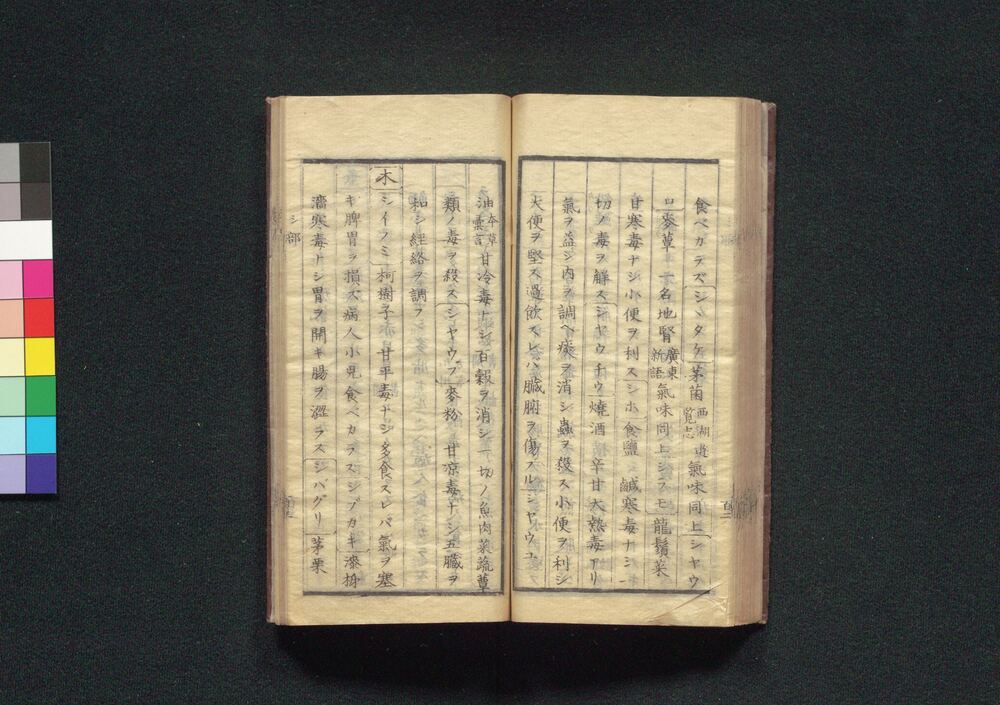 食ベカラズシメタケ茅菌西湖遊覧志氣味同上シヤウ
ロ麥蕈一名地腎廣東新語氣味同上シラモ龍鬚菜
甘寒毒ナシ小便ヲ利スシホ食鹽鹹寒毒ナシ一
切ノ毒ヲ解スシヤウチウ燒酒辛甘大熱毒アリ
氣ヲ益シ肉ヲ調ヘ痰ヲ消シ蟲ヲ殺ス小便ヲ利シ
大便ヲ堅ス過飲スレハ臓腑ヲ傷スルシヤウユ
油本草彙言甘冷毒ナシ百穀ヲ消シ一切ノ魚肉菜蔬蕈
類ノ毒ヲ殺スシヤウフ麥粉甘凉毒ナシ五臓ヲ
和シ経絡ヲ調フ
木シイノミ柯樹子甘平毒ナシ多食スレバ氣ヲ塞
キ脾胃ヲ損ズ病人小児食ベカラスシブカキ漆柿
濇寒毒ナシ胃ヲ開キ腸ヲ澀ラスシバグリ茅栗
シ部